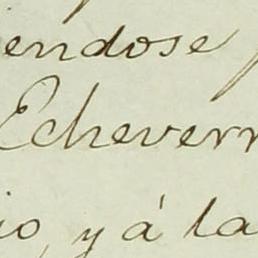 endose
Echeverr
io, y á la